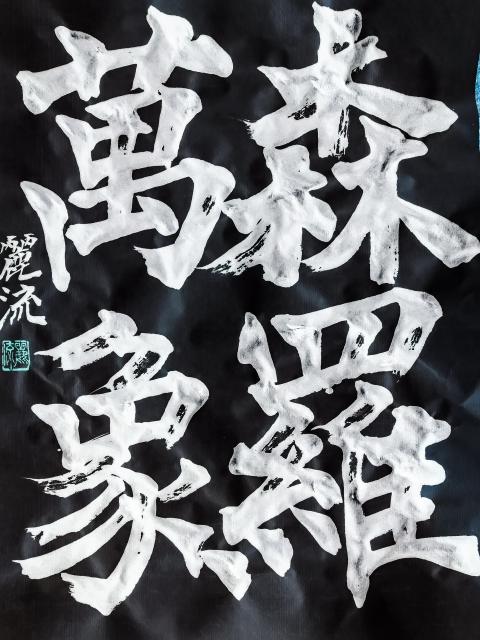 森羅
萬象
麗流